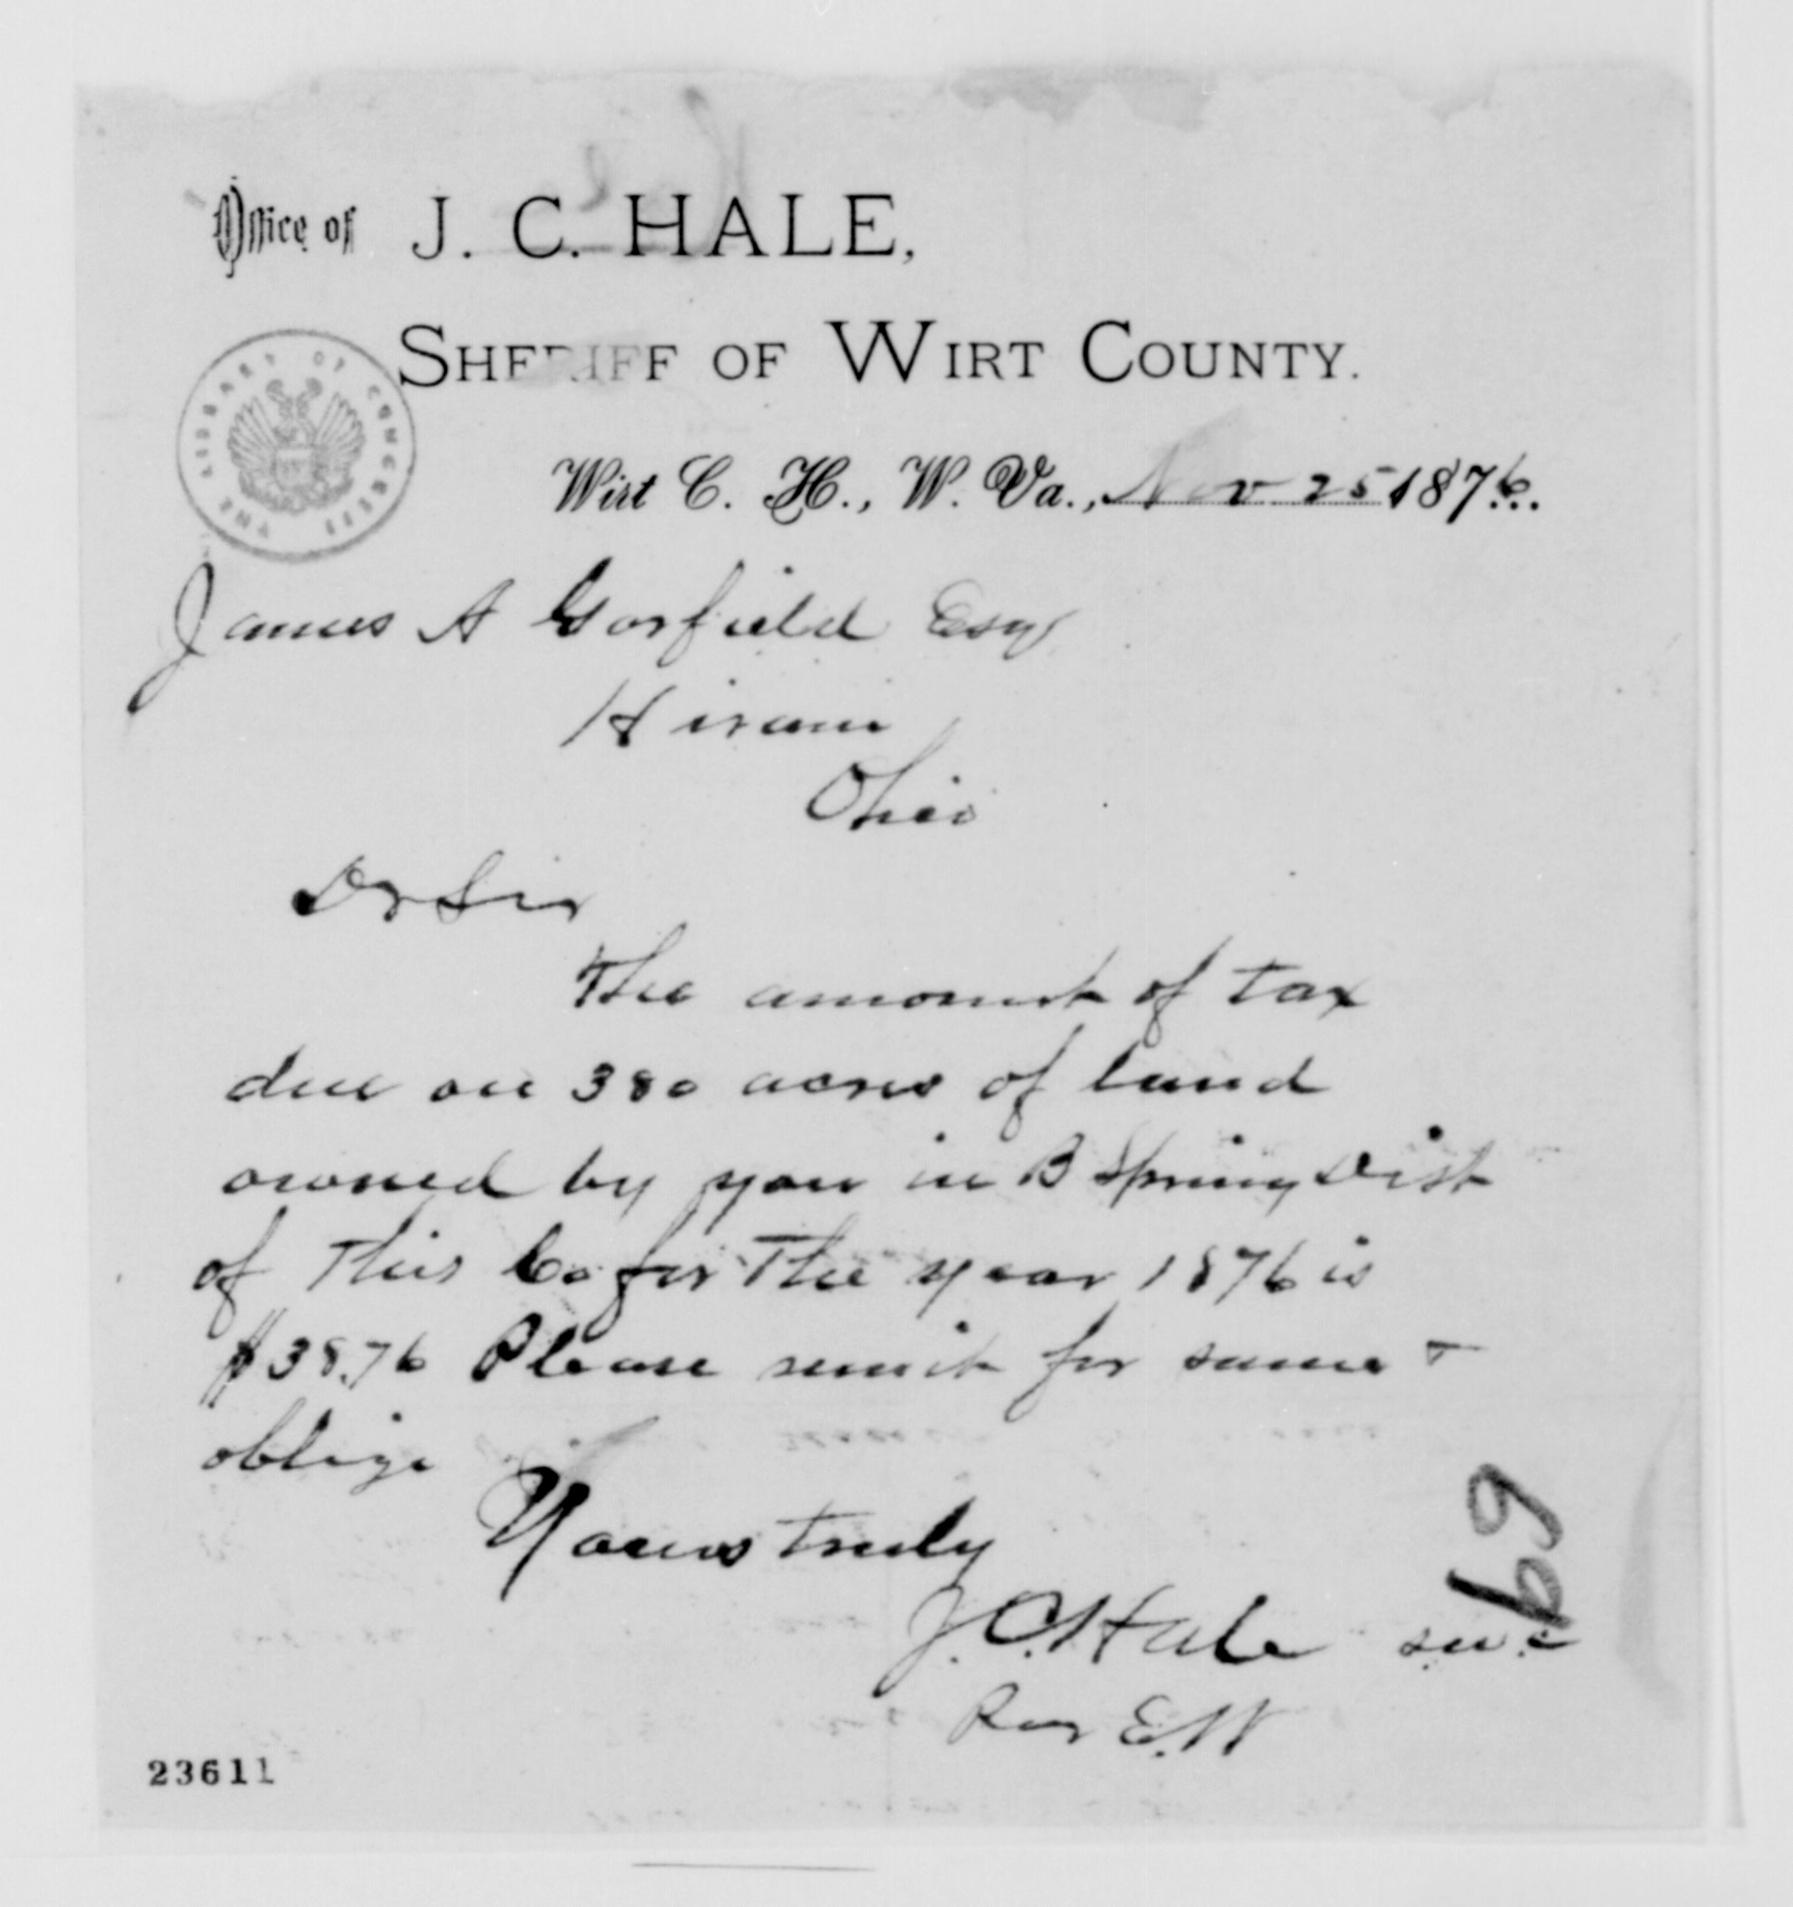 Office of J. C. HALE,
SHERIFF OF WIRT COUNTY.
THE LIBRARY OF CONGRESS
Wirt C. H., W. Va., Nov 25 1876.
James A Garfield Esqr
Hiram
Ohio
Dr Sir
The amount of tax
due on 380 acres of land
owned by you in B Spring Dist
of This Co for The year 1876 is
$38.76 Please remit for same &
oblige
Yours truly
J. C. Hale S.W.C
Per E.W
69
23611